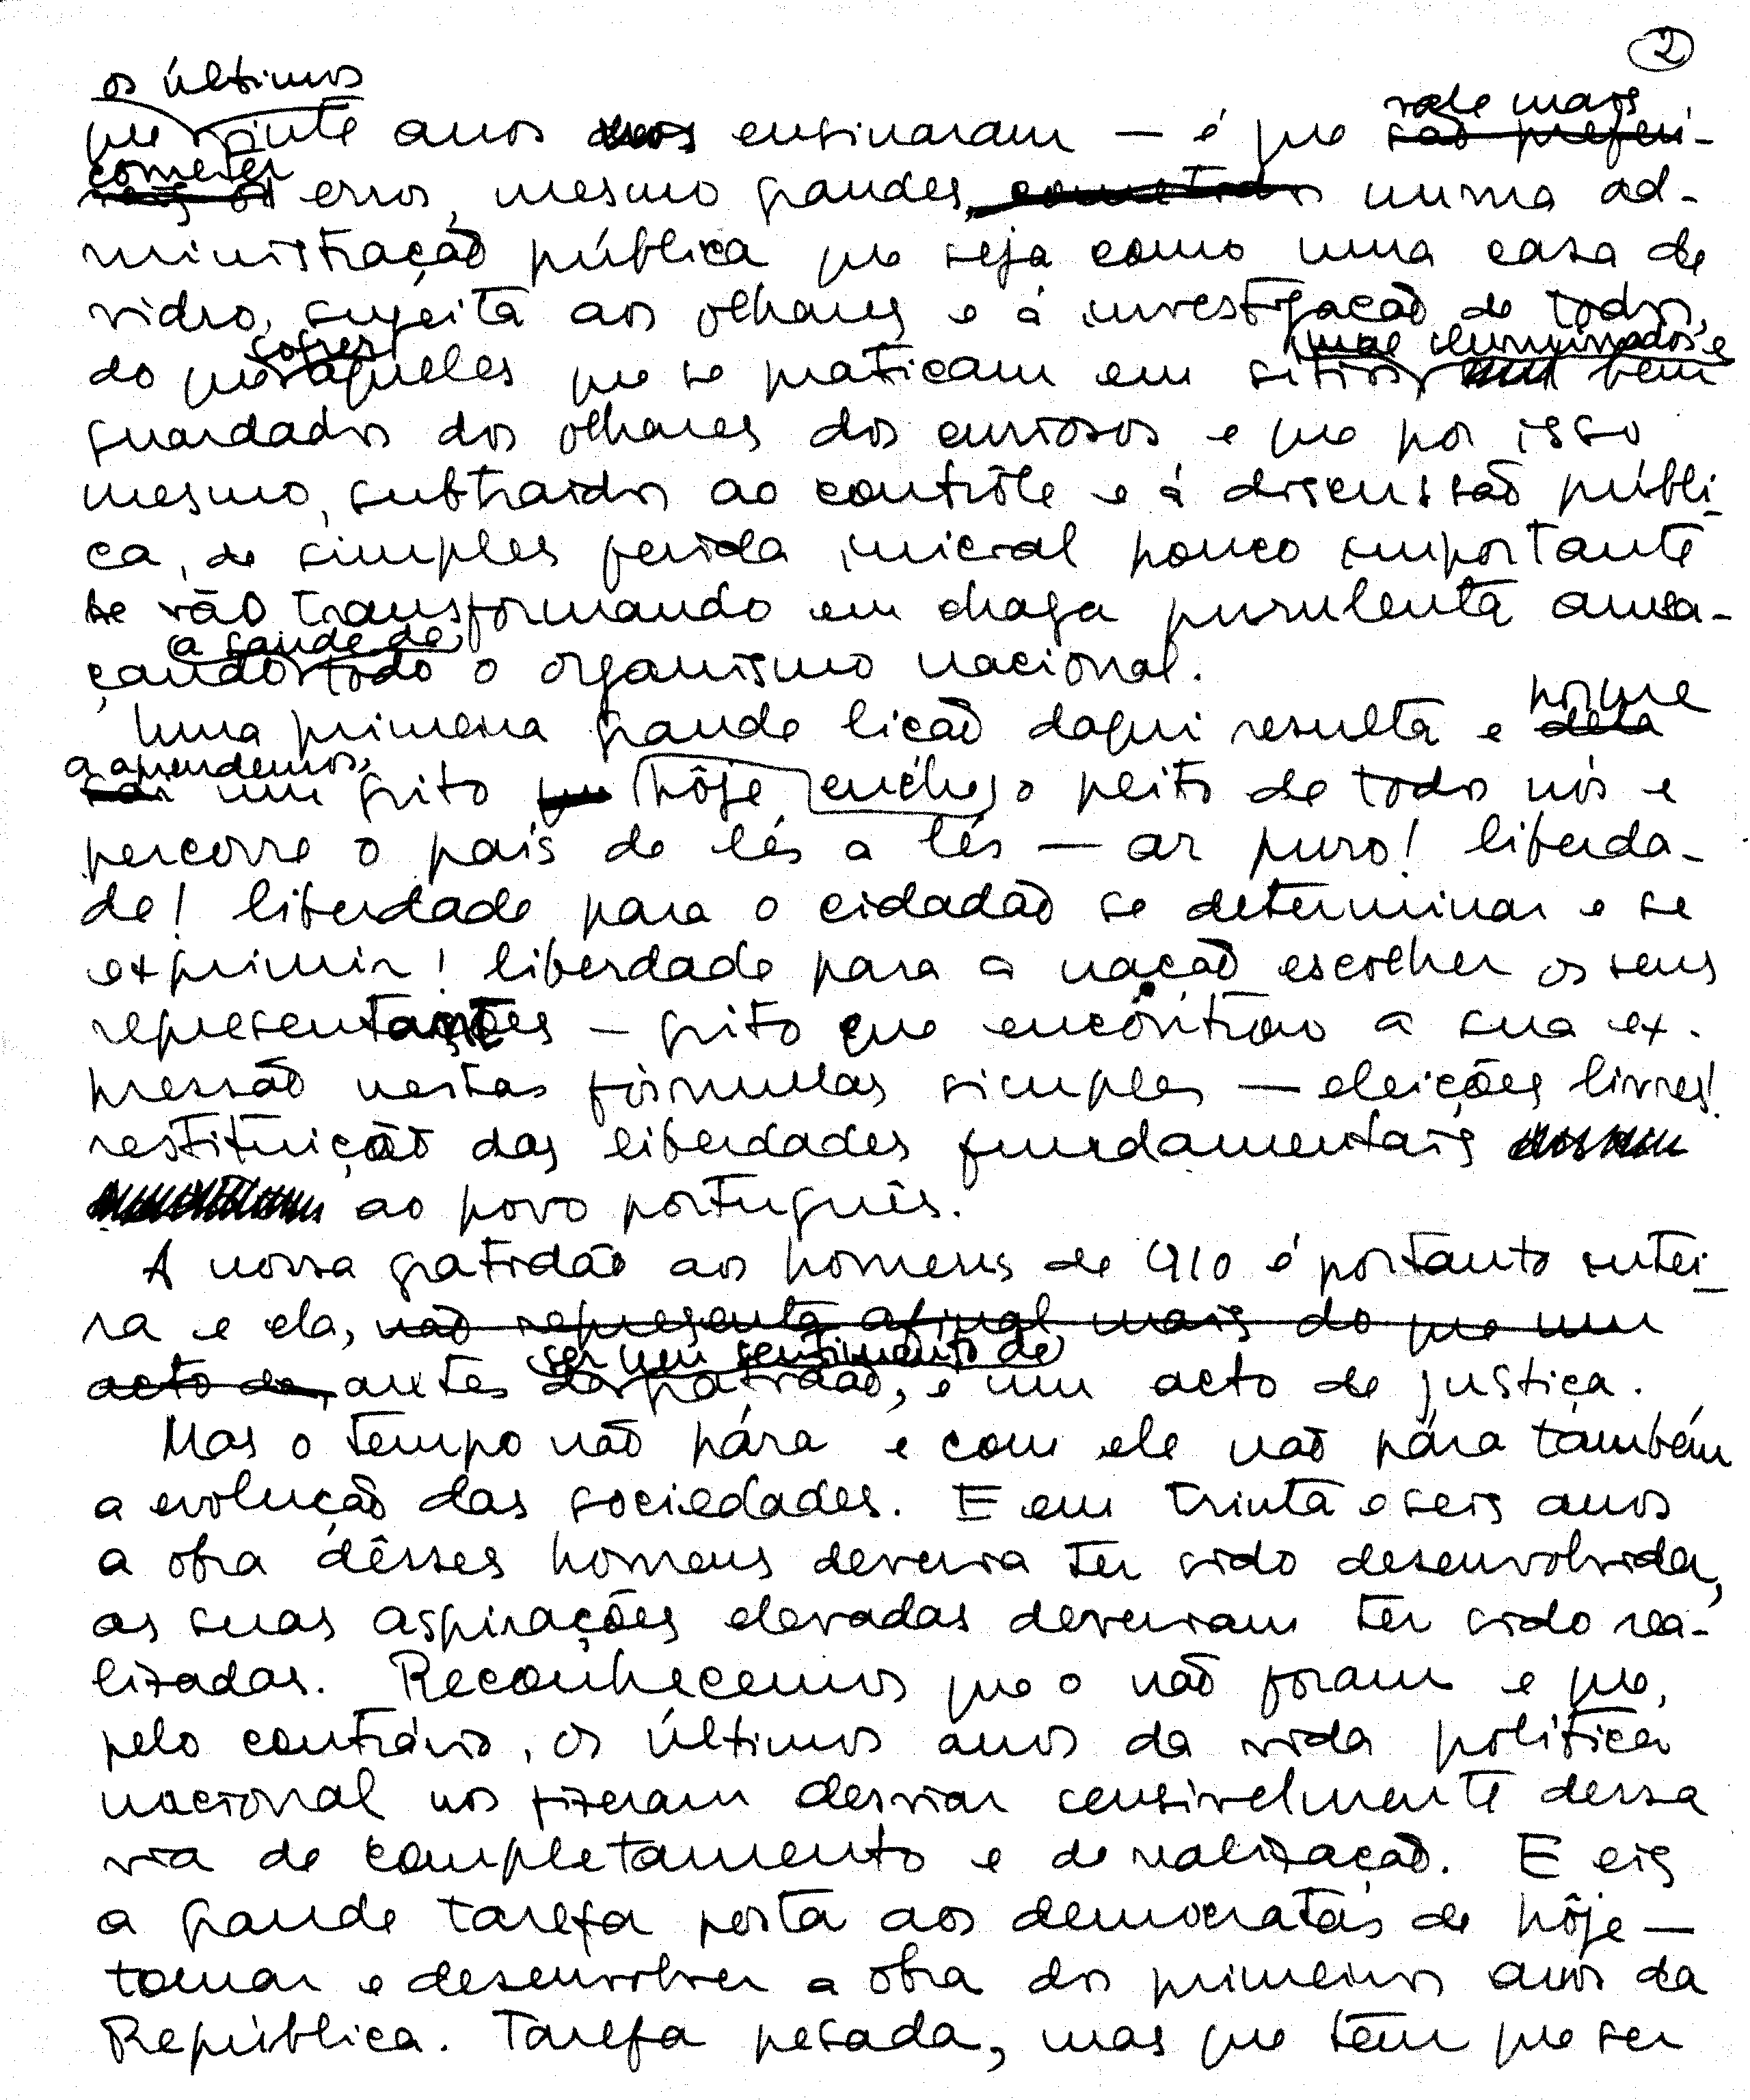 2
os últimos
que vinte anos nos ensinaram — é que são preferi-
vale mais
cometer
veis os erros, mesmo grandes, cometidos numa ad-
ministração pública que seja como uma casa de
vidro, sujeita aos olhares e á investigação de todos,
sofrer
mal iluminados e
do que aqueles que se praticam em sitios bem
guardados dos olhares dos curiosos e que por isso
mesmo, subtraidos ao contrôle e á discussão públi-
ca, de simples ferida inicial pouco importante
se vão transformando em chaga purulenta amea-
a saude de
çando todo o organismo nacional.
porque
Uma primeira grande lição daqui resulta e dela
a aprendemos,
sai um grito que hôje enche o peito de todos nós e
percorre o país de lés a lés — ar puro! liberda-
de! liberdade para o cidadão se determinar e se
exprimir! liberdade para a nação escolher os seus
representantes — grito que encontrou a sua ex-
pressão nestas fórmulas simples — eleições livres!
restituição das liberdades fundamentais
ao povo português.
A nossa gratidão aos homens de 910 é portanto intei-
ra e ela, não representa afinal mais do que um
ser um sentimento de
acto de, antes de gratidão, é um acto de justiça.
Mas o tempo não pára e com ele não pára também
a evolução das sociedades. E em trinta e seis anos
a obra dêsses homens deveria ter sido desenvolvida,
as suas aspirações elevadas deveriam ter sido rea-
lizadas. Reconhecemos que o não foram e que,
pelo contrário, os últimos anos da vida política
nacional nos fizeram desviar sensivelmente dessa
via de completamento e de realização. E eis
a grande tarefa posta aos democratas de hôje —
tomar e desenvolver a obra dos primeiros anos da
República. Tarefa pesada, mas que têm que ser